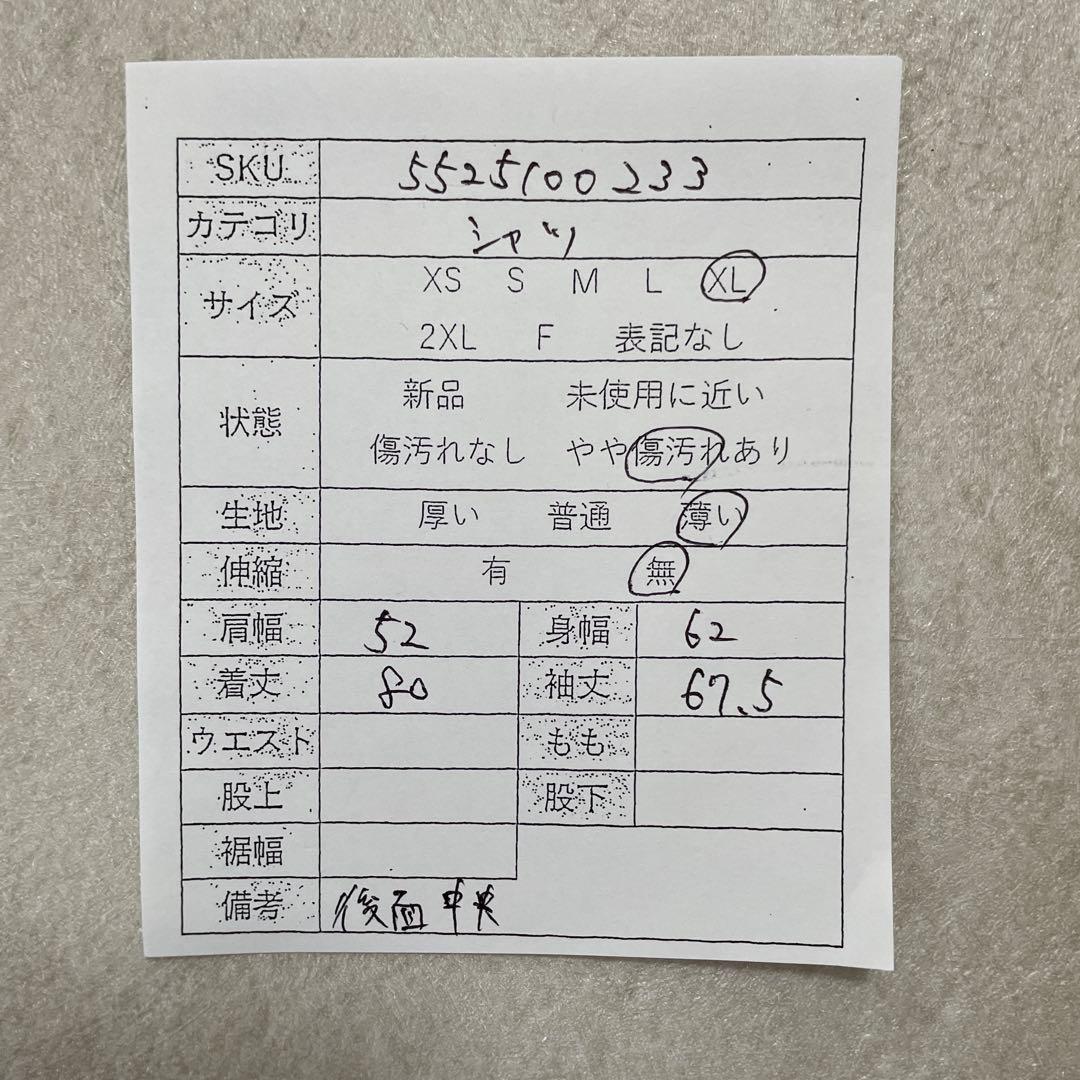 SKU 5525100233
カテゴリ シャツ
サイズ XS S M L XL
2XL F 表記なし
状態 新品 未使用に近い
傷汚れなし やや傷汚れあり
生地 厚い 普通 薄い
伸縮 有 無
肩幅 52 身幅 62
着丈 80 袖丈 67.5
ウエスト もも
股上 股下
裾幅
備考 後面中央